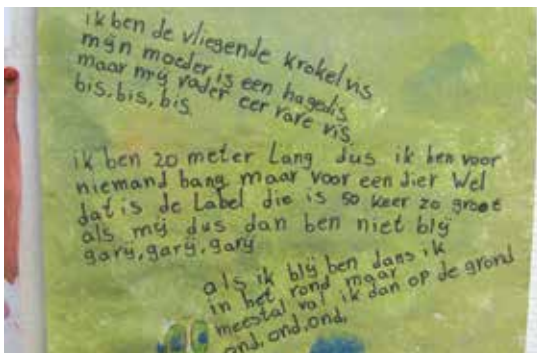 ik ben de vliegende krokelvis
mijn moeder is een hagedis
maar mij vader eer rare vis
bis, bis, bis
ik ben 20 meter Lang dus ik ben voor
niemand bang maar voor een dier Wel
dat is de Label die is 50 keer zo groot
als mij dus dan ben niet blij
garij, garij, garij
als ik blij ben dans ik
in het rond maar
meestal val ik dan op de grond
ond, ond, ond,